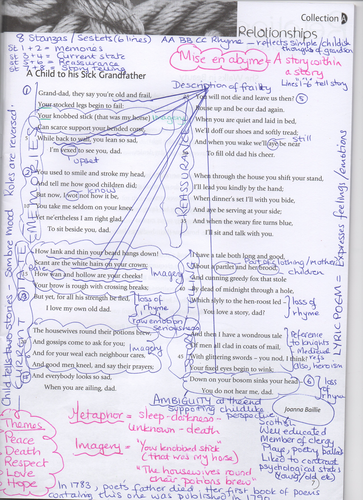 Collection A
Relationships
8 Stanzas / Sestets (6 lines) AA BB CC Rhyme - reflects simple/childish
thoughts of grandson
St 1+2 = Memories
Current state
Reassurance
Story telling
Mise en abyme - A story within
a story
Lines 1-6 tell story
A Child to his Sick Grandfather
Description of frailty
①
Grand-dad, they say you're old and frail,
Your stocked legs begin to fail:
Your knobbed stick (that was my horse)
Can scarce support your bended corse,
While back to wall, you lean so sad,
I'm vexed to see you, dad.
upset
②
You used to smile and stroke my head,
And tell me how good children did;
But now, I wot not how it be,
know
You take me seldom on your knee,
Yet ne'ertheless I am right glad,
To sit beside you, dad.
How lank and thin your beard hangs down!
Scant are the white hairs on your crown;
How wan and hollow are your cheeks!
Pale
Imagery
Your brow is rough with crossing breaks;
But yet, for all his strength be fled,
I love my own old dad.
loss of
rhyme
raw emotion
seriousness
The housewives round their potions brew,
And gossips come to ask for you;
Imagery
And for your weal each neighbour cares,
And good men kneel, and say their prayers,
And everybody looks so sad,
When you are ailing, dad.
You will not die and leave us then?
⑤
Rouse up and be our dad again.
When you are quiet and laid in bed,
We'll doff our shoes and softly tread;
And when you wake we'll aye be near
Still
To fill old dad his cheer.
When through the house you shift your stand,
I'll lead you kindly by the hand;
When dinner's set I'll with you bide,
And aye be serving at your side;
And when the weary fire turns blue,
I'll sit and talk with you.
I have a tale both long and good,
About a partlet and her brood,
Part of clothing/mother
children
And cunning greedy fox that stole
By dead of midnight through a hole,
Which slyly to the hen-roost led –
You love a story, dad?
loss of
rhyme
And then I have a wondrous tale
Of men all clad in coats of mail,
With glittering swords – you nod, I think?
Your fixed eyes begin to wink;
Down on your bosom sinks your head –
You do not hear me, dad.
Reference
to knights
+ Medieval
refs
also, heroism
loss
rhyme
REASSURANCE
Child tells two stories - Sombre Mood Roles are reversed
LYRIC POEM = Expresses feelings/emotions
AMBIGUITY at the end
supporting childlike
perspective
Joanna Baillie
Themes
Peace
Death
Respect
Love
Hope
Metaphor = Sleep - darkness
unknown - death
Imagery = "You knobbed stick
(that was my horse)"
"The housewives round
their potions brew"
Scottish
Well educated
Member of clergy
Plays, poetry ballads
Liked to contrast
psychological states
(young/old etc)
In 1783, poets father died. Her first book of poems
containg this one was published in 1790